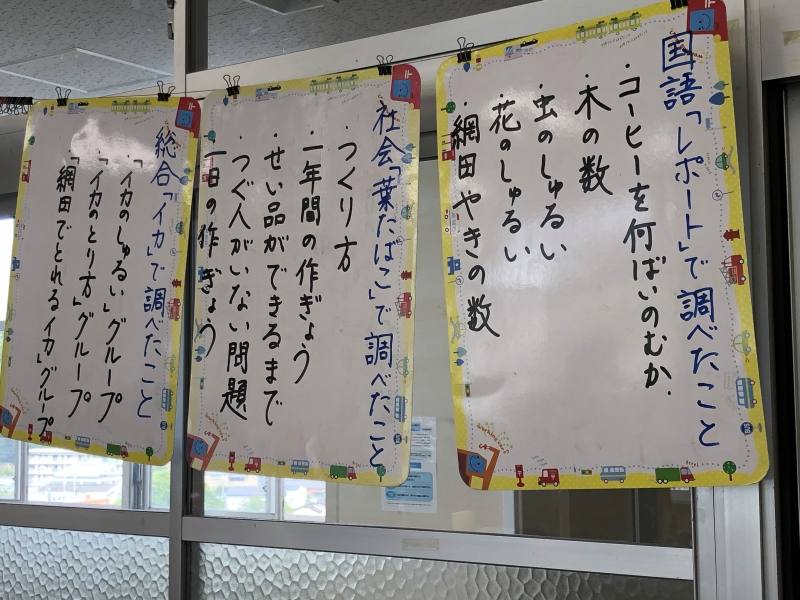 国語「レポート」で調べたこと
・コーヒーを何ばいのむか。
・木の数
・虫のしゅるい
・花のしゅるい
・網田やきの数
社会「葉たばこ」で調べたこと
・つくり方
・一年間の作ぎょう
・せい品ができるまで
・つぐ人がいない問題
・一日の作ぎょう
総合「イカ」で調べたこと
・「イカのしゅるい」グループ
・「イカのとり方」グループ
・「網田でとれるイカ」グループ